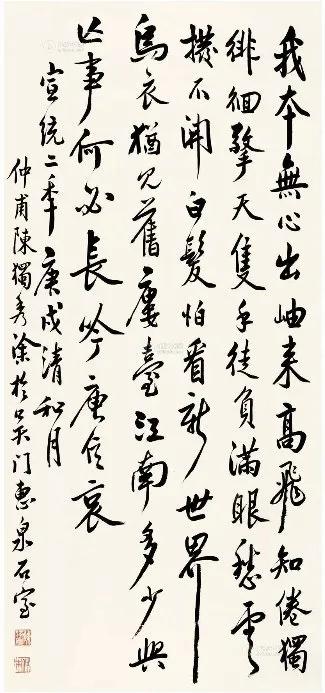 我本無心出岫来高飛知倦獨
徘徊擎天隻手徒負滿眼愁雲
撥不開白髮怕看新世界
烏衣猶見舊樓臺江南多少興
亡事何必長吟庾信哀
宣統二年庚戌清和月
仲甫陳獨秀塗於吴门惠泉石室